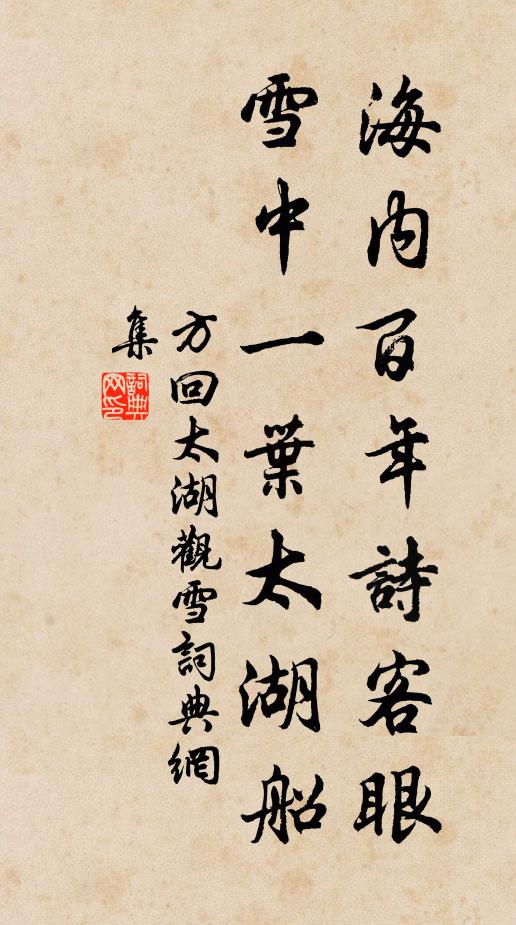 海內百年詩客眼
雪中一葉太湖船
方回太湖觀雪詞典網
集
詞典
网印